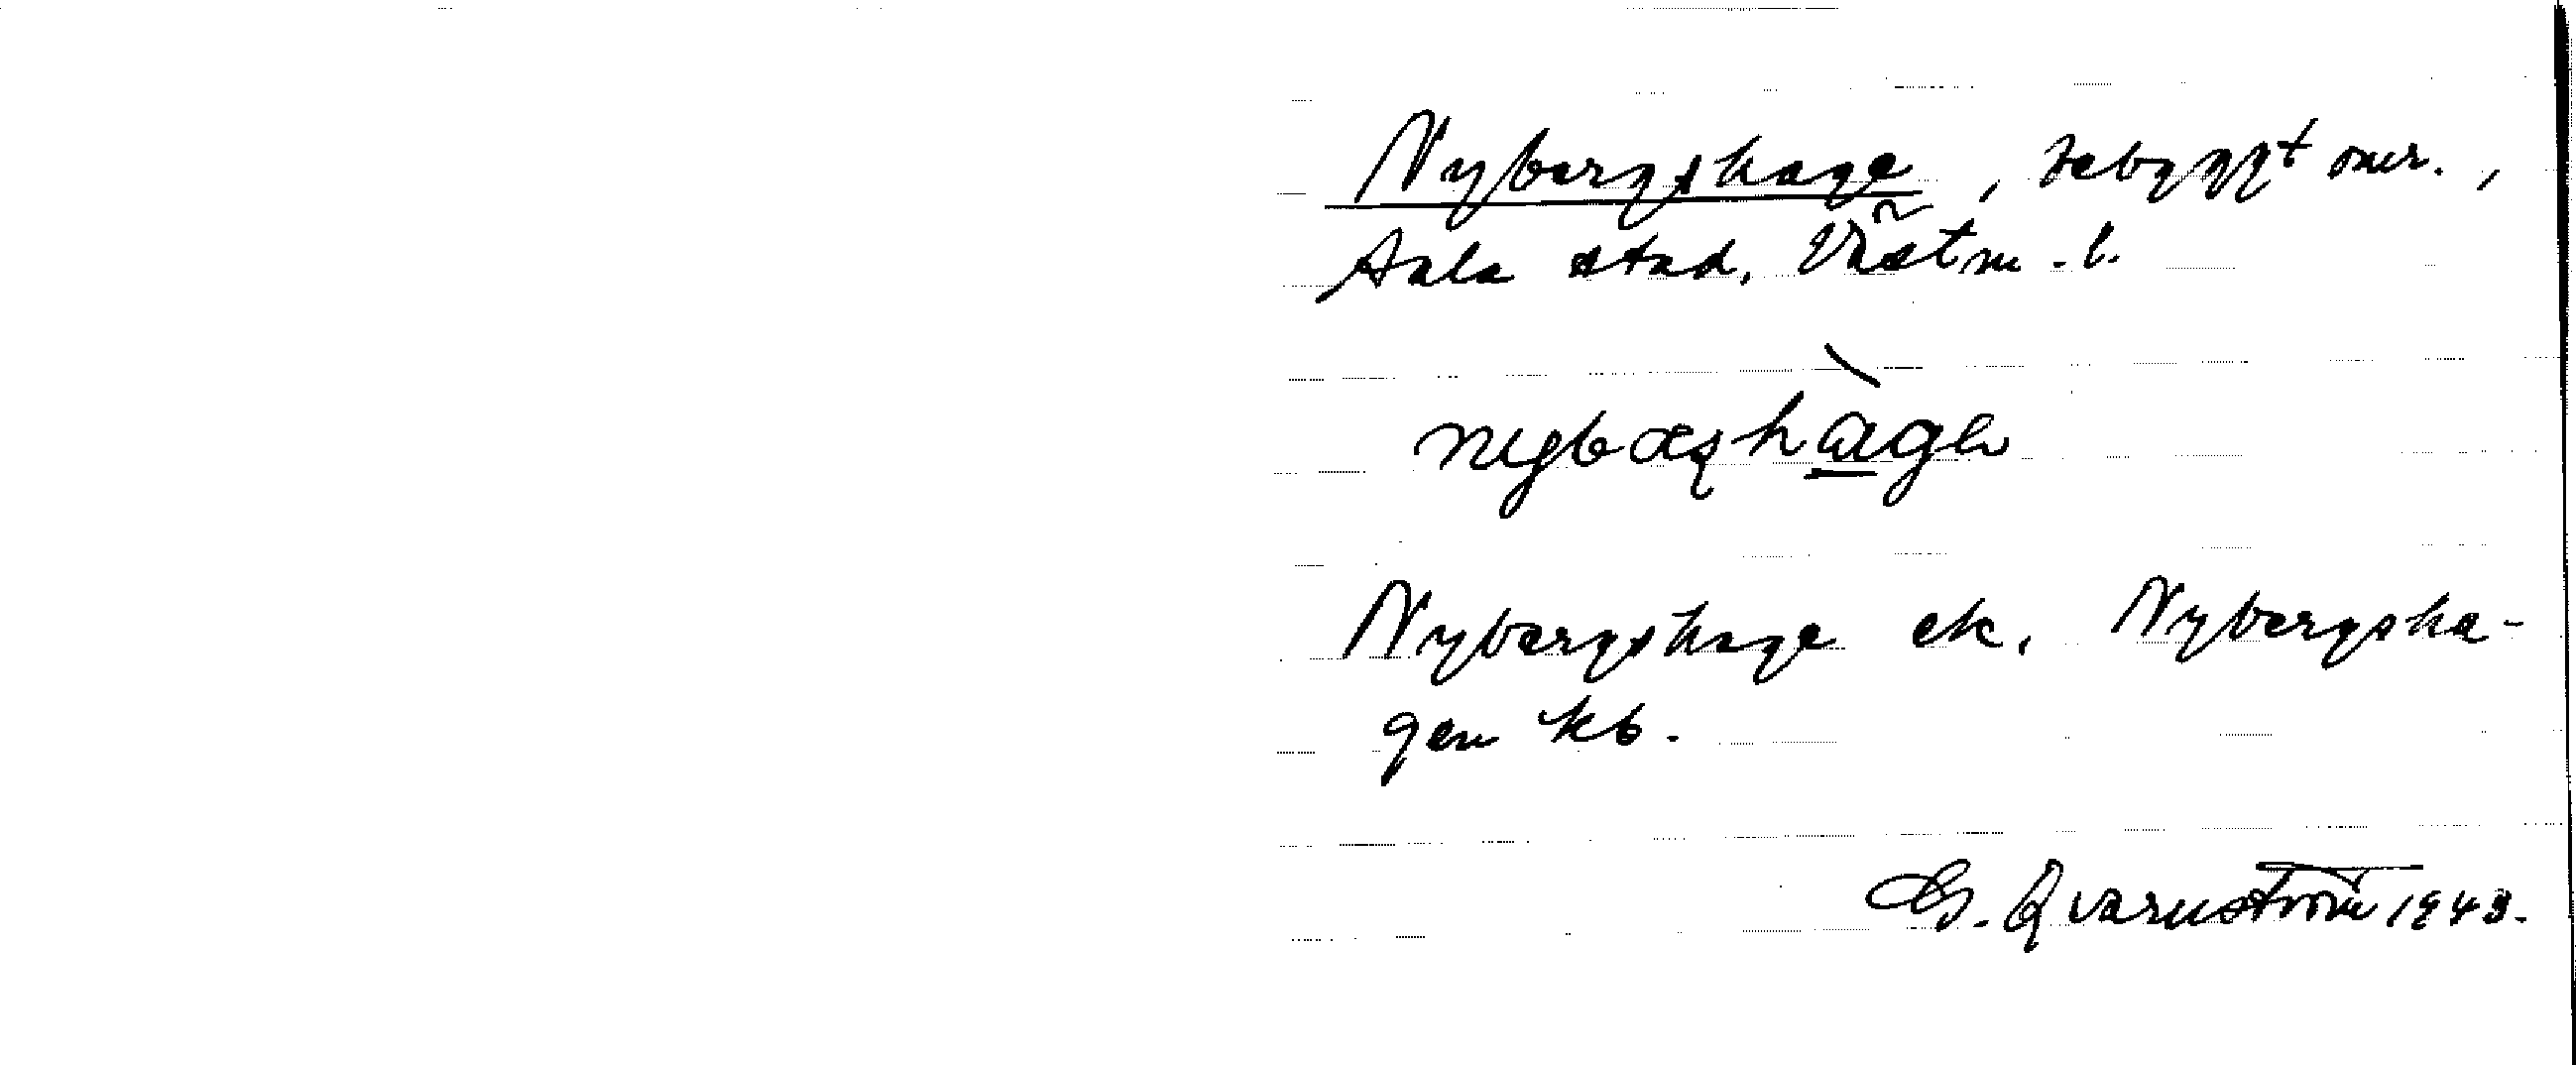 Nybergshage, bebyggt omr.,
Sala stad, Västm. l.
Nybergshage ek. Nybergsha-
gen kb.
G. Qvarnström 1943.